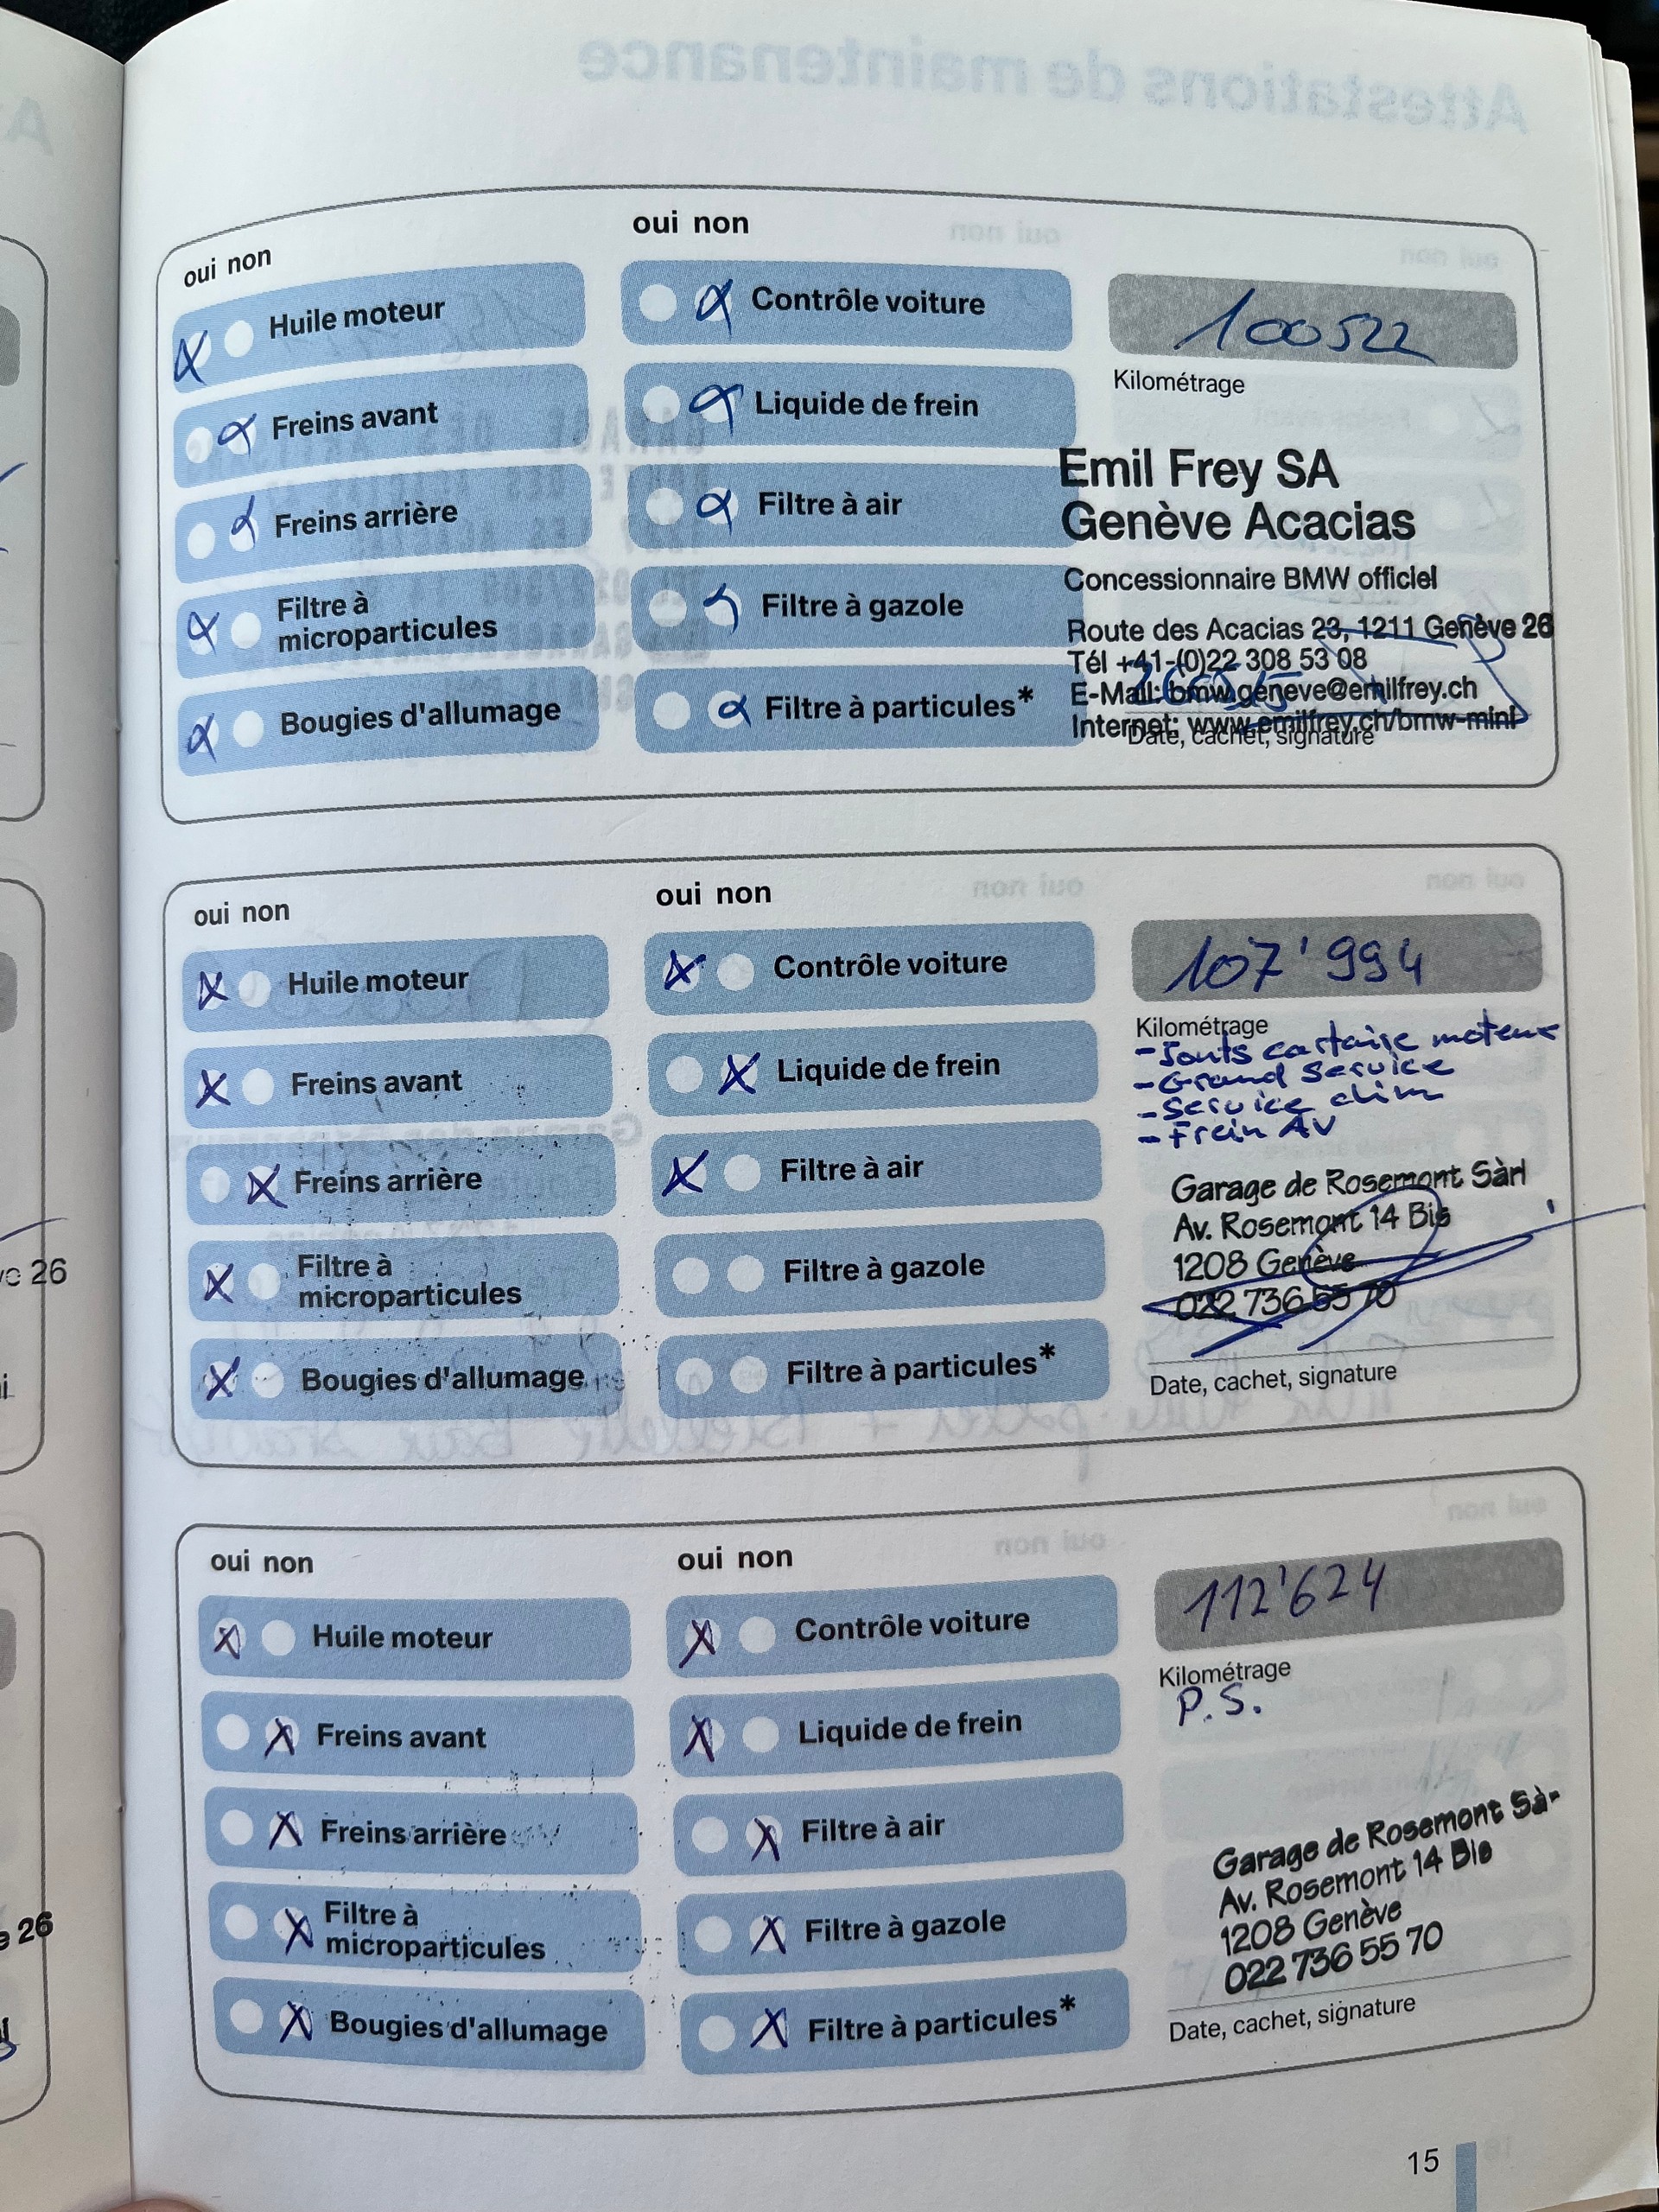 oui non
Huile moteur
Freins avant
Freins arrière
Filtre à
microparticules
Bougies d'allumage
oui non
Contrôle voiture
Liquide de frein
Filtre à air
Filtre à gazole
Filtre à particules*
100522
Kilométrage
Emil Frey SA
Genève Acacias
Concessionnaire BMW officiel
Route des Acacias 23, 1211 Genève 26
Tél +41-(0)22 308 53 08
E-Mail: bmw.geneve@emilfrey.ch
Internet: www.emilfrey.ch/bmw-mini
Date, cachet, signature
oui non
Huile moteur
Freins avant
Freins arrière
Filtre à
microparticules
Bougies d'allumage
oui non
Contrôle voiture
Liquide de frein
Filtre à air
Filtre à gazole
Filtre à particules*
107'994
Kilométrage
- Joints moteur
- Grand service
- Service clim
- Frein AV
Garage de Rosemont Sàrl
Av. Rosemont 14 Bis
1208 Genève
022 736 55 70
Date, cachet, signature
oui non
Huile moteur
Freins avant
Freins arrière
Filtre à
microparticules
Bougies d'allumage
oui non
Contrôle voiture
Liquide de frein
Filtre à air
Filtre à gazole
Filtre à particules*
112'624
Kilométrage
P.S.
Garage de Rosemont Sà
Av. Rosemont 14 Bis
1208 Genève
022 736 55 70
Date, cachet, signature
15